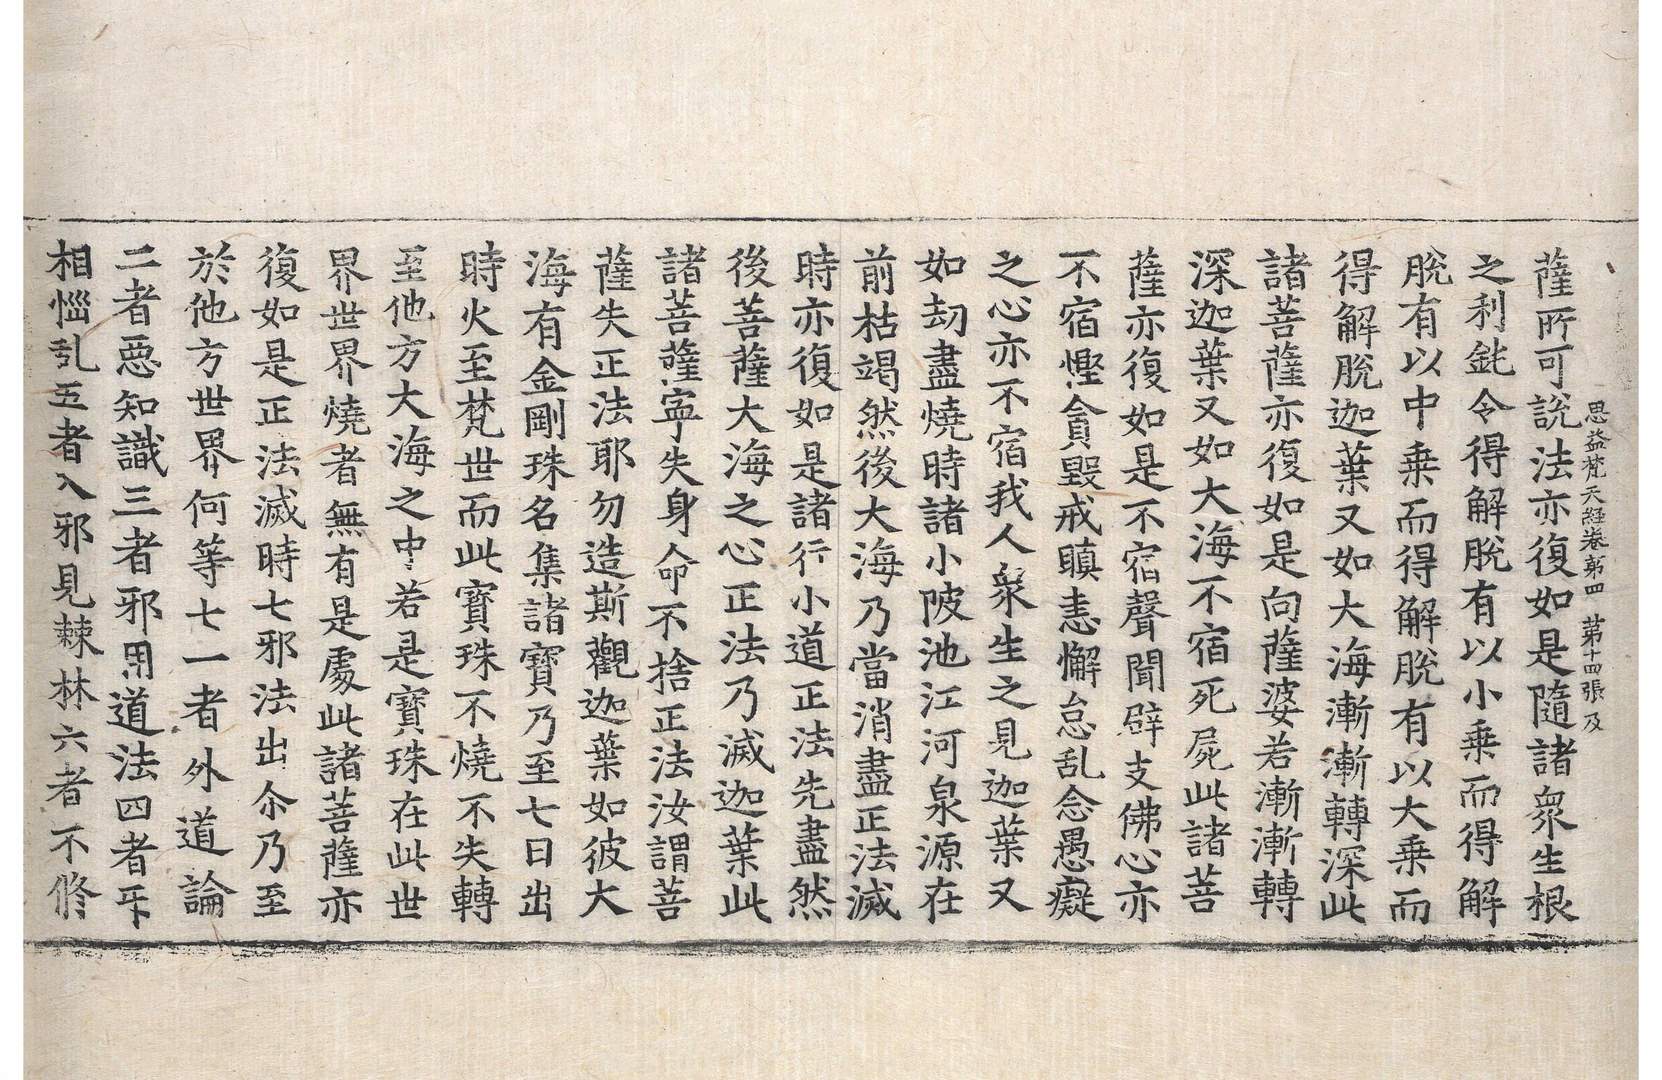 思益梵天経卷第四　第十四張　及
薩所可說法亦復如是隨諸衆生根
之利鈍令得解脫有以小乗而得解
脫有以中乗而得解脫有以大乗而
得解脫迦葉又如大海漸漸轉深此
諸菩薩亦復如是向薩婆若漸漸轉
深迦葉又如大海不宿死屍此諸菩
薩亦復如是不宿聲聞辟支佛心亦
不宿慳貪毀戒瞋恚懈怠乱念愚癡
之心亦不宿我人衆生之見迦葉又
如劫盡燒時諸小陂池江河泉源在
前枯竭然後大海乃當消盡正法滅
時亦復如是諸行小道正法先盡然
後菩薩大海之心正法乃滅迦葉此
諸菩薩寧失身命不捨正法汝謂菩
薩失正法耶勿造斯觀迦葉如彼大
海有金剛珠名集諸寶乃至七日出
時火至梵世而此寶珠不燒不失轉
至他方大海之中若是寶珠在此世
界世界燒者無有是處此諸菩薩亦
復如是正法滅時七邪法出尒乃至
於他方世界何等七一者外道論
二者惡知識三者邪用道法四者㸦
相惱乱五者入邪見棘林六者不修